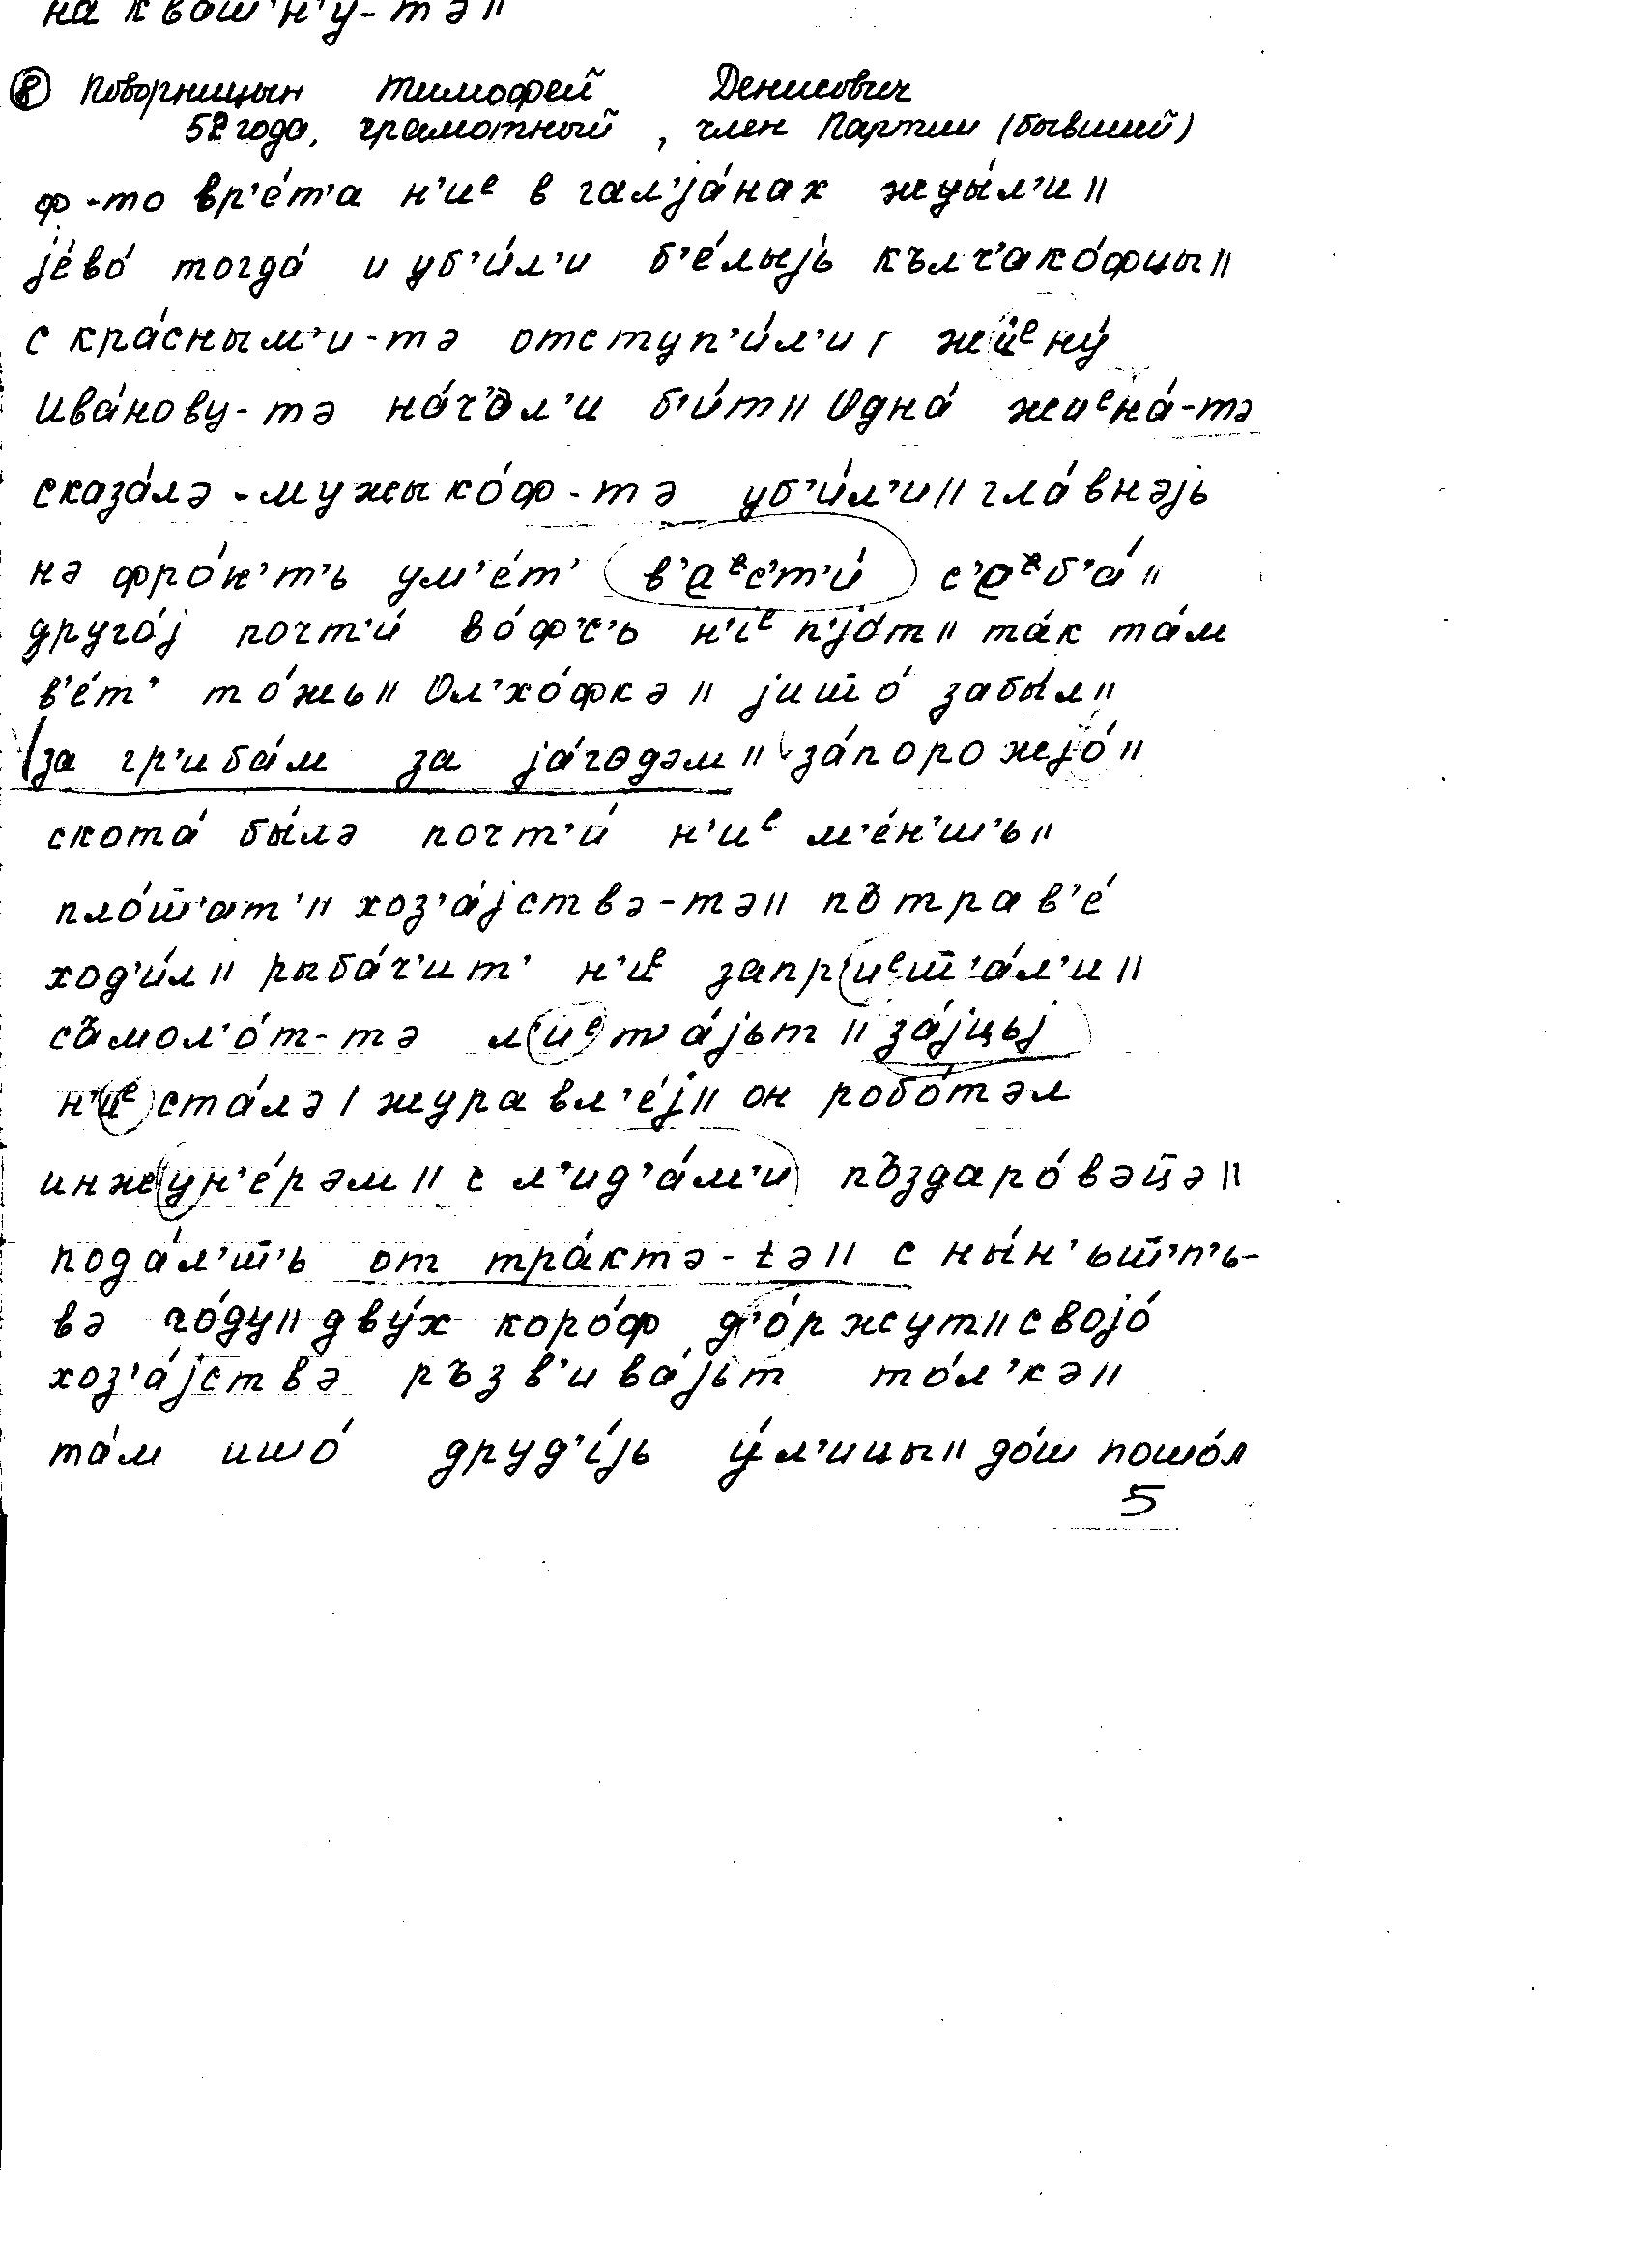 на квош'н'у-тə॥
⑧ Поворницын Тимофей Денисович
52 года, грамотный, член Партии (бывший)
ф-то вр'е́т'а н'иᵉ в гал'jа́нах жуы́л'и॥
jево́ тогда́ и уб'и́л'и б'е́лыjь кълч'ако́фцы॥
с кра́сным'и-тə отступ'и́л'и/ жыᵉну́
Ива́нову-тə на́ч'əл'и б'и́т॥ Одна́ жоᵉна́-тə
сказа́лə-мужыко́ф-тə уб'и́л'и॥ гла́внəjь
нə фро́н'т'ь ум'е́т' в'аᵉс'т'и́ с'аᵉб'а́॥
друго́j почт'и́ во́фс'ь н'iᵉ п'jо́т॥ та́к та́м
в'е́т' то́жь॥ Ол'хо́фкə॥ jишо́ забы́л॥
за гр'иба́м за jа́годəм॥ за́порожjо́॥
скота́ бы́лə почт'и́ н'иᵉ м'е́н'ш'ь॥
пло́ш̅'ат'॥ хоз'а́jствə-тə॥ пътрав'е́
ход'и́л॥ рыба́ч'ит' н'иᵉ запр'иᵉш̅'а́л'и॥
съмол'о́т-тə л'иᵉта́jьт॥ за́jцьj
н'иᵉ ста́лə/ журавл'е́j॥ он робо́тəл
инжун'е́рəм॥ с л'уд'а́м'и пъздаро́вəц̅ə॥
пода́л'ш'ь от тра́ктə-tə॥ с ны́н'ьш'н'ь-
вə го́ду॥ дву́х коро́ф д'о́ржут॥ своjо́
хоз'а́jствə ръзв'ива́jьт то́л'кə॥
та́м ишо́ друд'íjь у́л'ицы॥ до́ш пошо́л
5